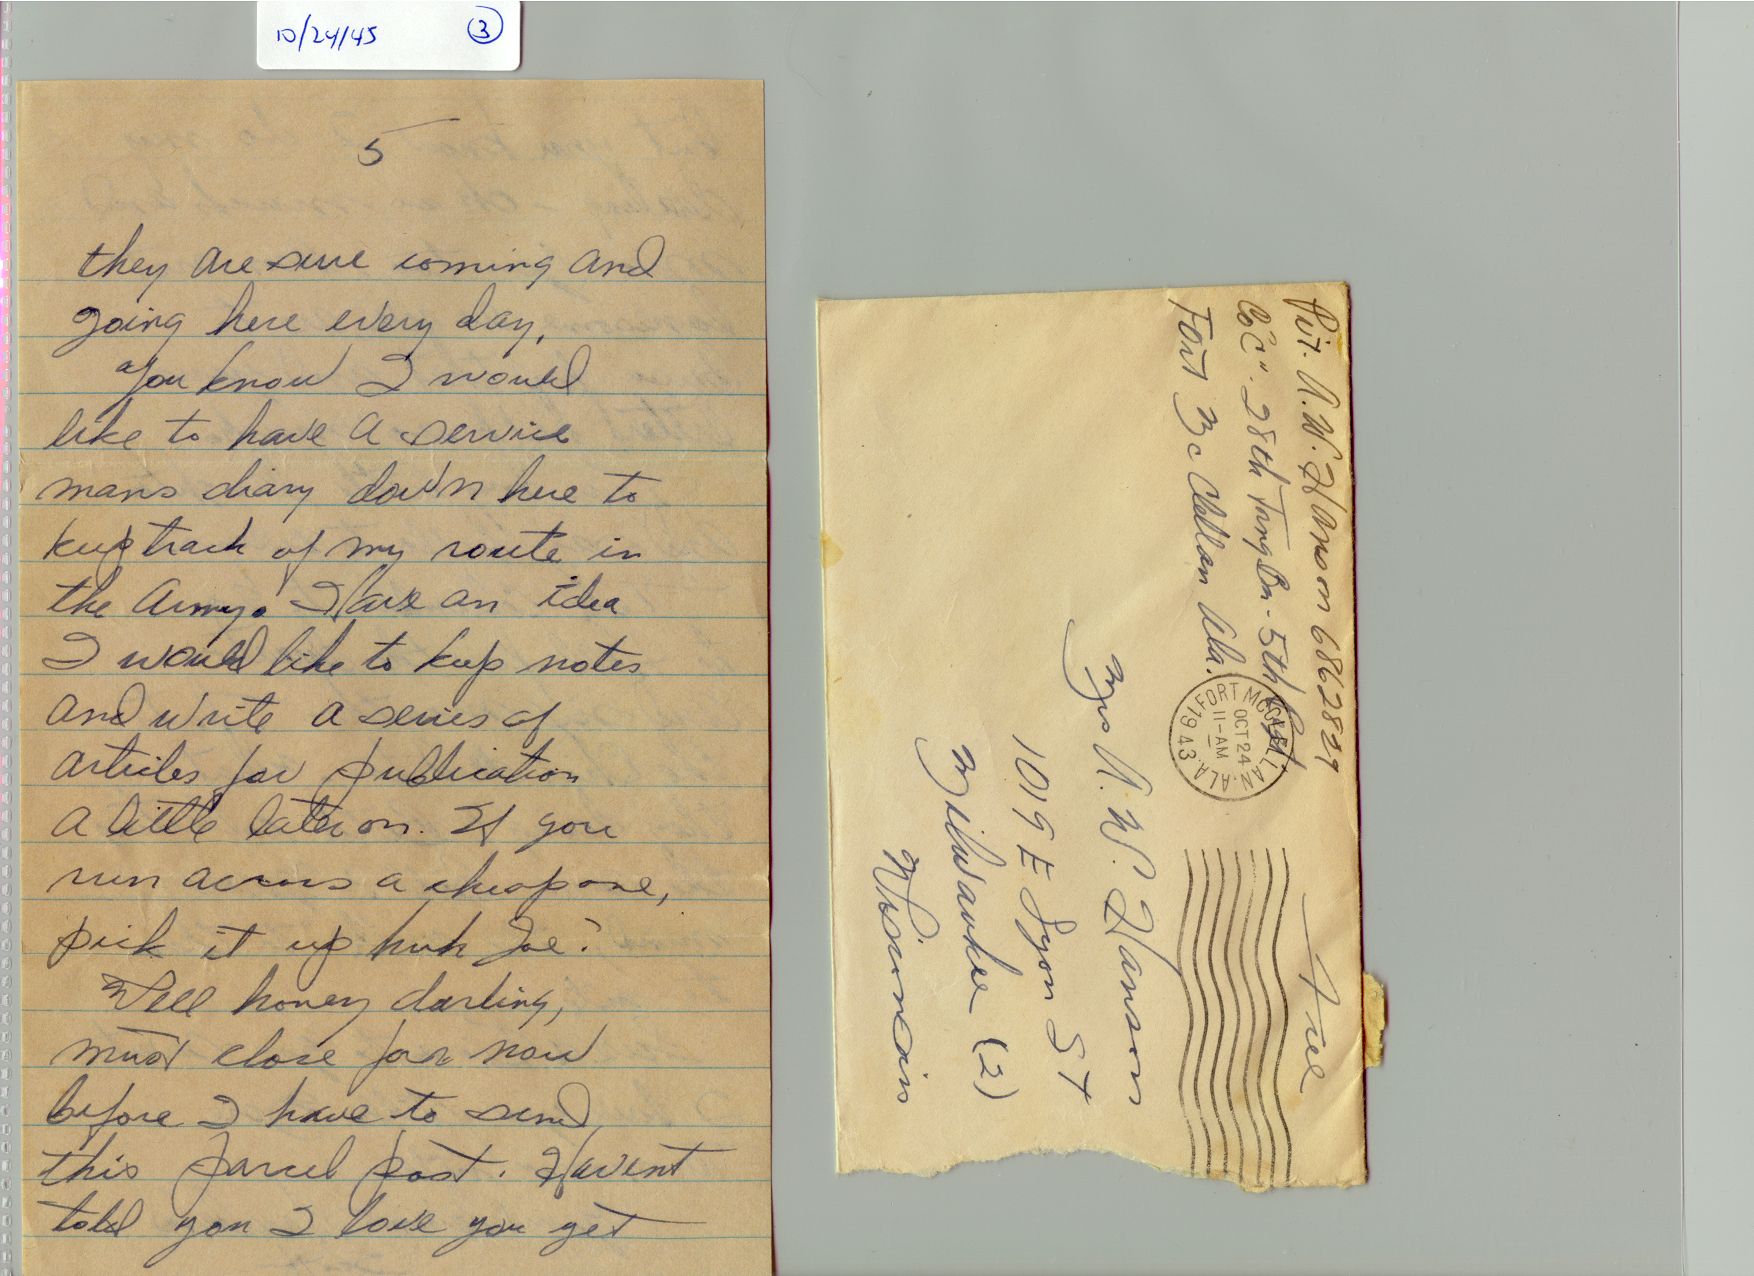 10/24/45 3
5
they are sure coming and
going here every day.
You know I would
like to have a service
mans diary down here to
keep track of my route in
the Army. Have an idea
I would like to keep notes
and write a series of
articles for publication
a little later on. If you
run across a cheap one,
pick it up huh Joe?
Well honey darling,
must close for now
before I have to send
this parcel post. Havent
told you I love you yet
Pvt. A.W. Hanson 6862829
Co "C" - 28th Trng Bn - 5th Regt.
Fort McClellan Ala.
FORT MCCLELLAN, ALA.
OCT 24
11-AM
1943
Free
Mrs A. W. Hanson
1019 E Lyon St
Milwaukee (2)
Wisconsin